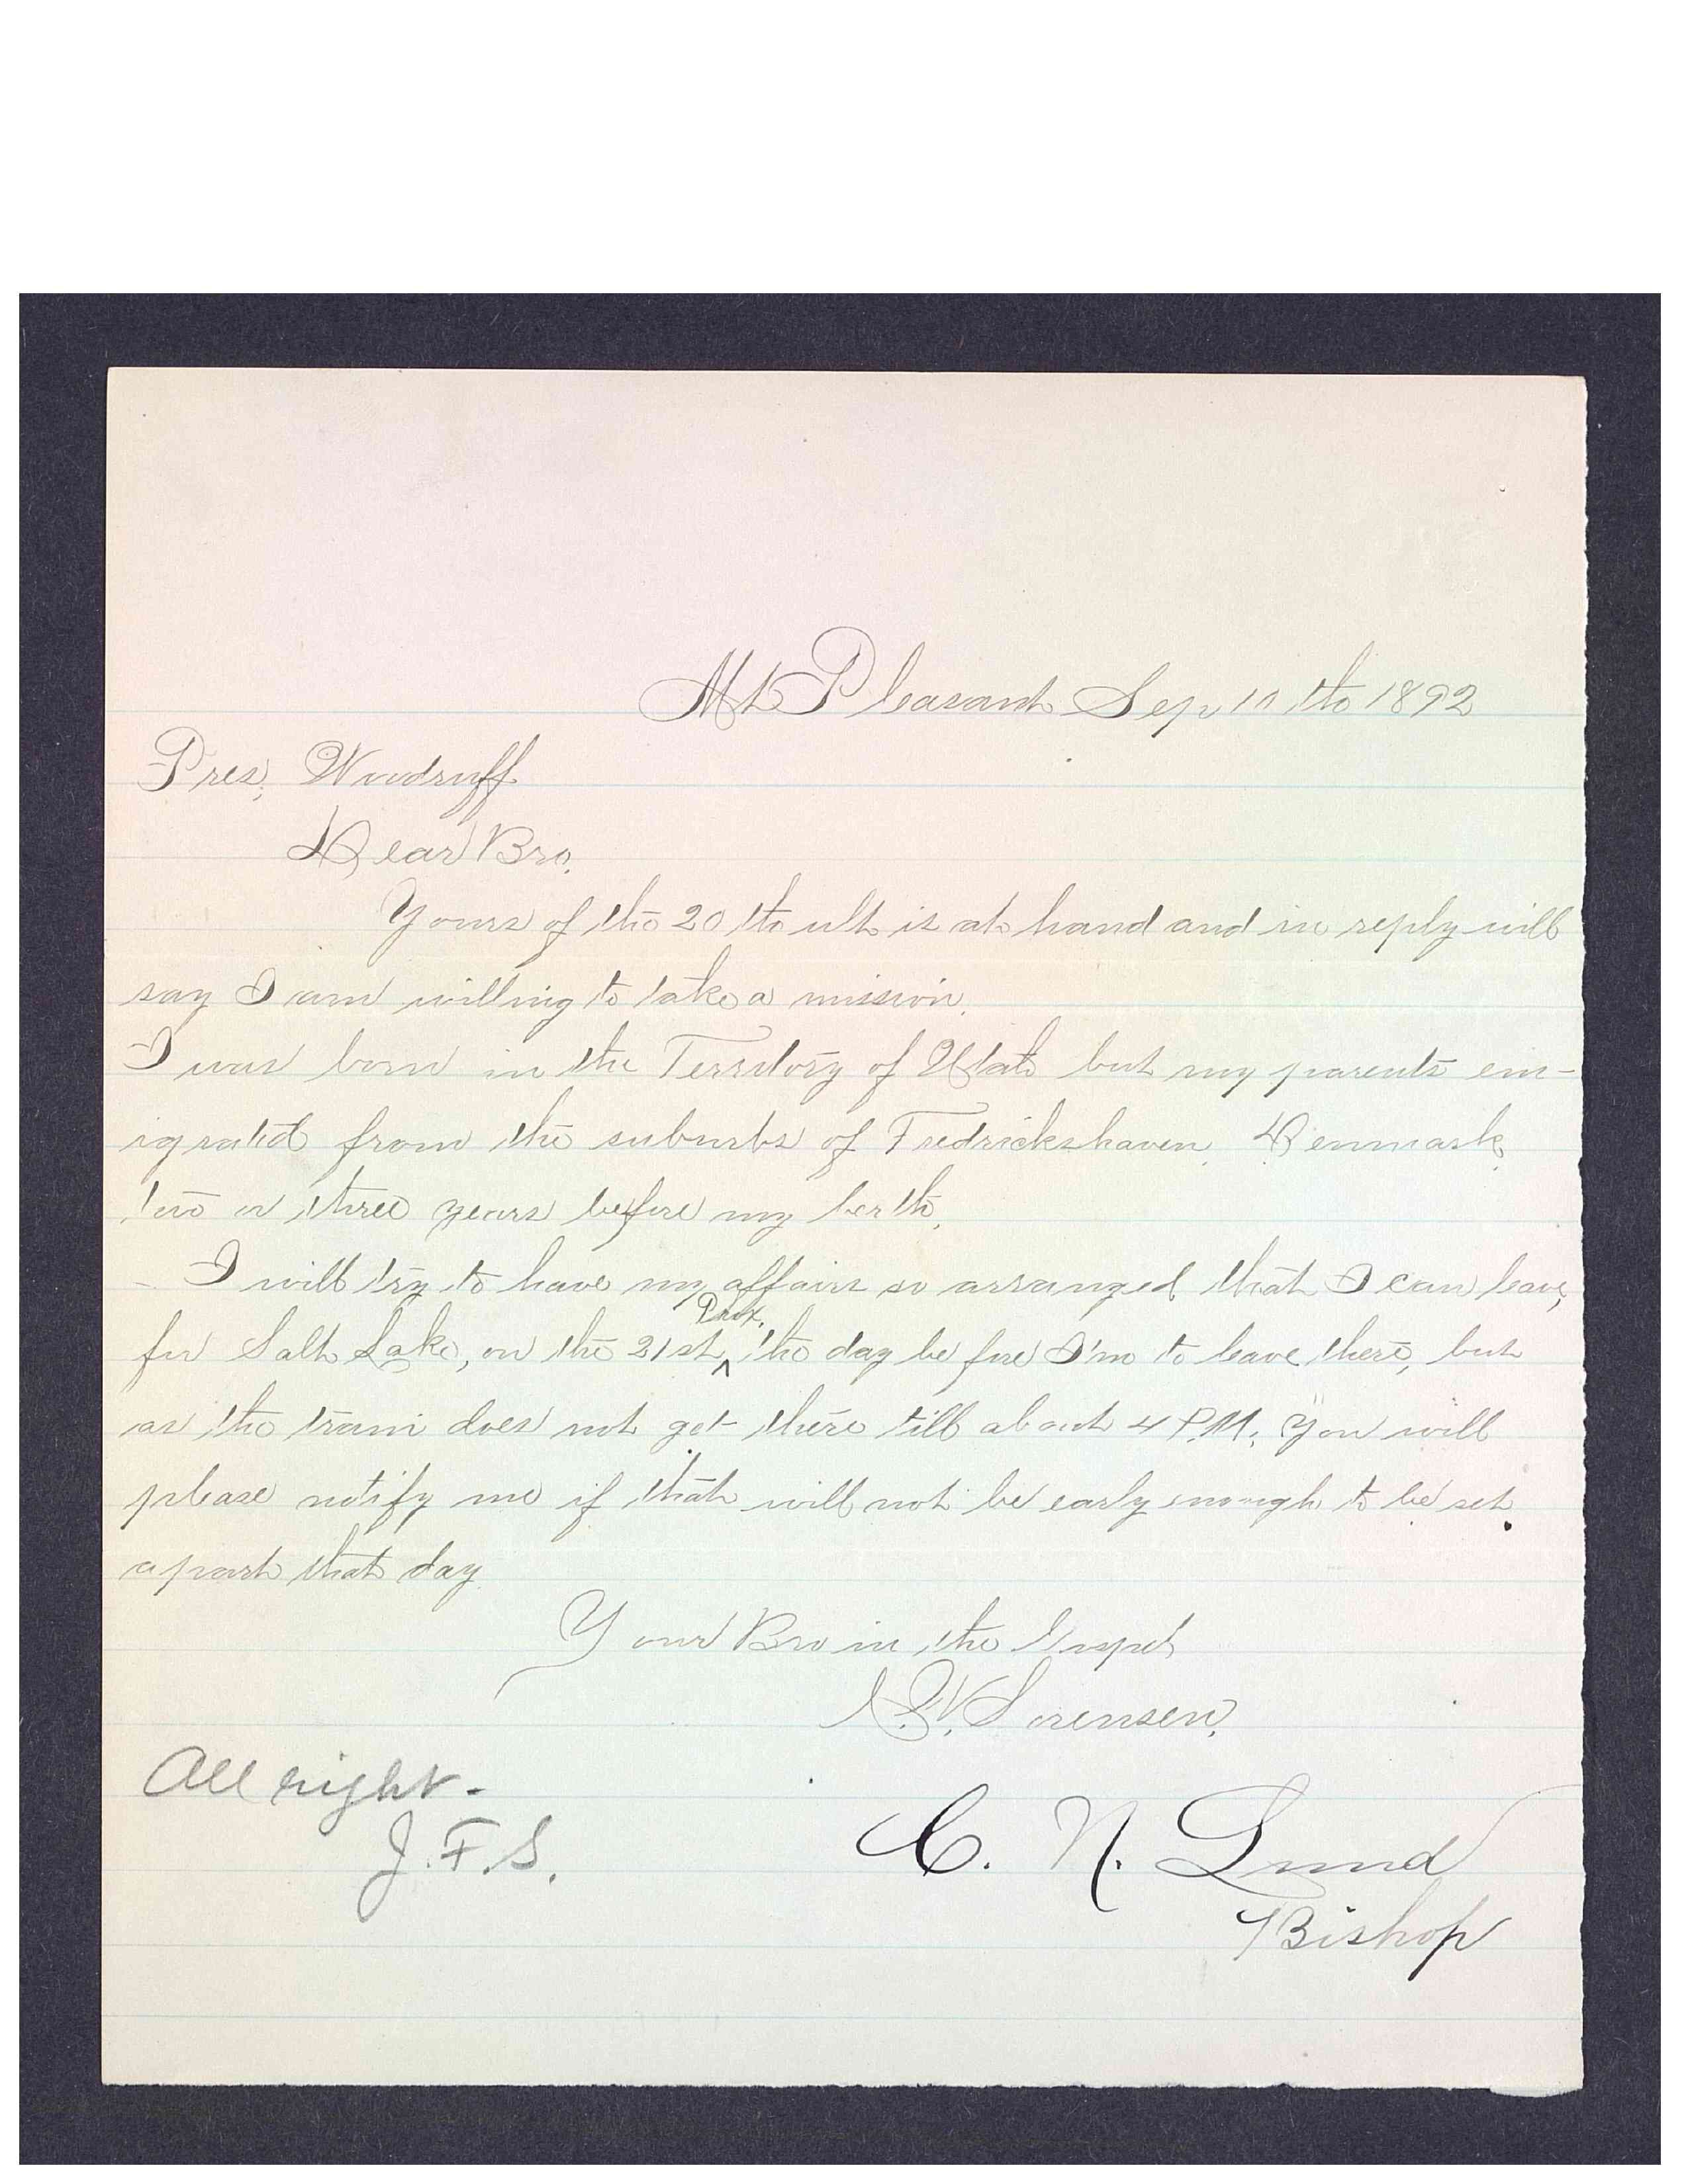 Mt Pleasant Sep 10th 1892
Pres; Woodruff
Dear Bro.
Yours of the 20th ult is at hand and in reply will
say I am willing to take a mission.
I was born in the Territory of Utah but my parents em-
igrated from the suburbs of Fredrickshaven, Denmark,
two or three years before my berth.
I will try to have my affairs so arranged that I can leave,
Prox.
for Salt Lake, on the 21st ^ the day before I'm to leave there, but
as the train does not get there till about 4 P.M; you will
please notify me if that will not be early enough to be set
apart that day.
Your Bro in the Gospel
Sorensen.
All right.-
J.F.S.
C. N. Lund
Bishop